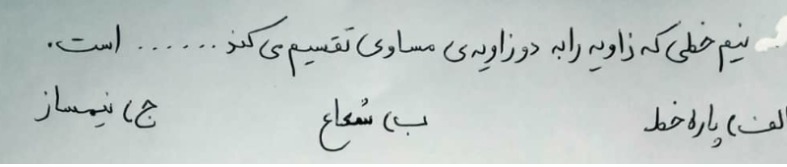 نیم خطی که زاویه را به دو زاویه ی مساوی تقسیم می کند ...... است.
الف) پاره خط ب) شعاع ج) نیمساز